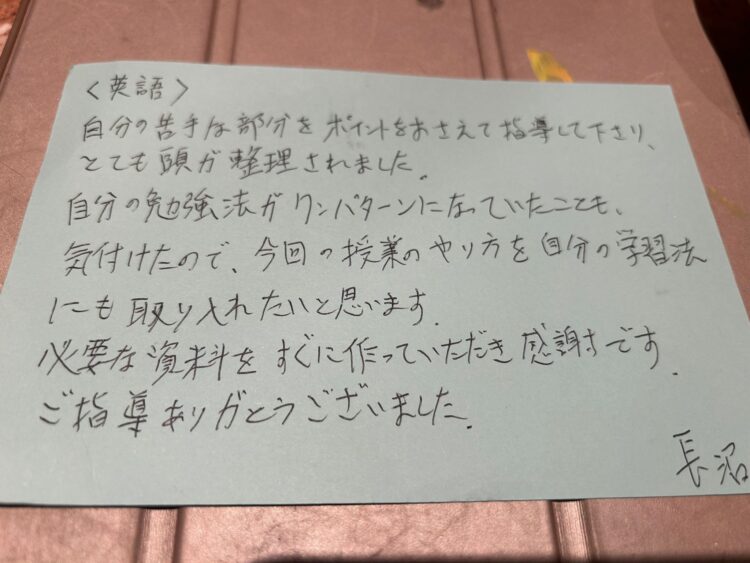 〈英語〉
自分の苦手な部分をポイントをおさえて指導して下さり、
とても頭が整理されました。
自分の勉強法がワンパターンになっていたことも、
気付けたので、今回の授業のやり方を自分の学習法
にも取り入れたいと思います。
必要な資料をすぐに作っていただき感謝です。
ご指導ありがとうございました。
長沼